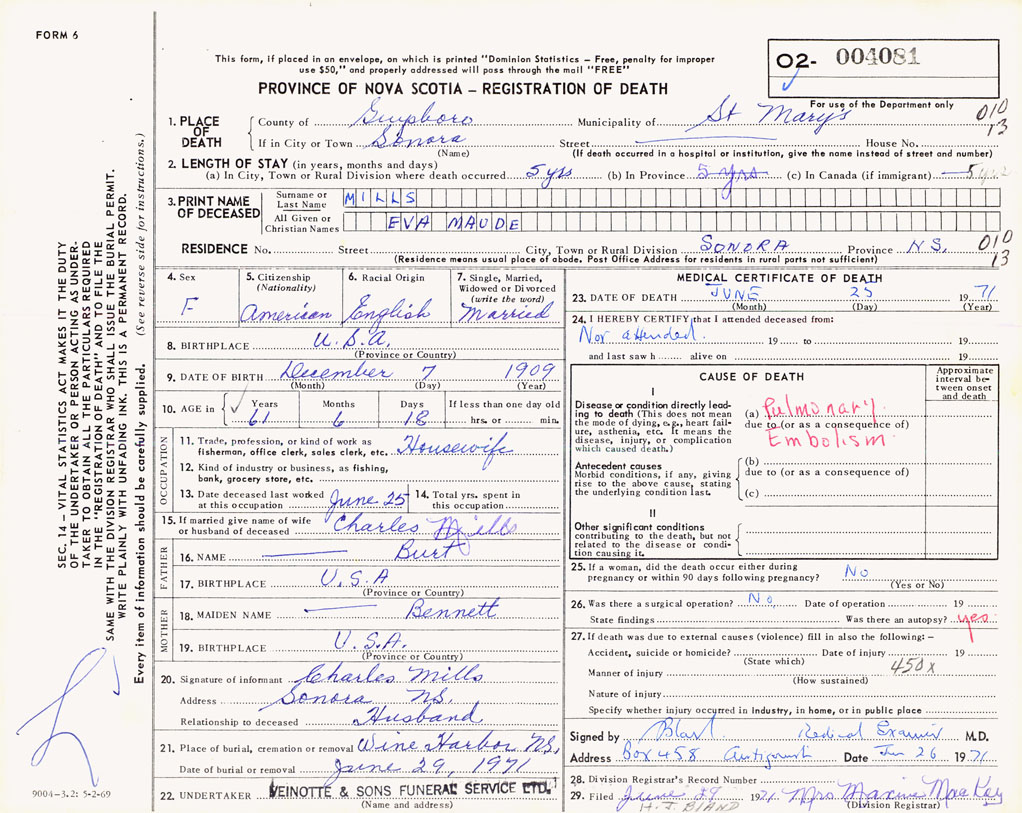 FORM 6
This form, if placed in an envelope, on which is printed "Dominion Statistics – Free, penalty for improper
use $50," and properly addressed will pass through the mail "FREE"
O2- 004081
PROVINCE OF NOVA SCOTIA – REGISTRATION OF DEATH
For use of the Department only
1. PLACE OF DEATH
County of Guysboro Municipality of St Mary's 010
13
If in City or Town Sonora Street House No.
(Name) (If death occurred in a hospital or institution, give the name instead of street and number)
2. LENGTH OF STAY (in years, months and days)
(a) In City, Town or Rural Division where death occurred 5 yrs (b) In Province 5 yrs (c) In Canada (if immigrant) 5 yrs
3. PRINT NAME OF DECEASED
Surname or Last Name MILLS
All Given or Christian Names EVA MAUDE
RESIDENCE No. Street City, Town or Rural Division SONORA Province N.S. 010
13
(Residence means usual place of abode. Post Office Address for residents in rural parts not sufficient)
4. Sex F
5. Citizenship (Nationality) American
6. Racial Origin English
7. Single, Married, Widowed or Divorced (write the word) Married
8. BIRTHPLACE U.S.A.
(Province or Country)
9. DATE OF BIRTH December 7 1909
(Month) (Day) (Year)
10. AGE in Years Months Days If less than one day old
61 6 18 hrs. or min.
OCCUPATION
11. Trade, profession, or kind of work as
fisherman, office clerk, sales clerk, etc. Housewife
12. Kind of industry or business, as fishing,
bank, grocery store, etc.
13. Date deceased last worked at this occupation June 25
14. Total yrs. spent in this occupation
15. If married give name of wife
or husband of deceased Charles Mills
FATHER
16. NAME Burt
17. BIRTHPLACE U.S.A
(Province or Country)
MOTHER
18. MAIDEN NAME Bennett
19. BIRTHPLACE U.S.A.
(Province or Country)
20. Signature of informant Charles Mills
Address Sonora NS.
Relationship to deceased Husband
21. Place of burial, cremation or removal Wine Harbor N.S.
Date of burial or removal June 29, 1971
22. UNDERTAKER VEINOTTE & SONS FUNERAL SERVICE LTD.
(Name and address)
MEDICAL CERTIFICATE OF DEATH
23. DATE OF DEATH JUNE 25 1971
(Month) (Day) (Year)
24. I HEREBY CERTIFY that I attended deceased from:
Not attended 19 to 19
and last saw h alive on 19
CAUSE OF DEATH
Approximate interval between onset and death
I
Disease or condition directly leading to death (This does not mean
the mode of dying, e.g., heart failure, asthenia, etc. It means the
disease, injury, or complication
which caused death.)
(a) Pulmonary
due to (or as a consequence of)
Embolism
Antecedent causes
Morbid conditions, if any, giving
rise to the above cause, stating
the underlying condition last.
(b)
due to (or as a consequence of)
(c)
II
Other significant conditions
contributing to the death, but not
related to the disease or condition causing it.
25. If a woman, did the death occur either during
pregnancy or within 90 days following pregnancy? No
(Yes or No)
26. Was there a surgical operation? No Date of operation 19
State findings Was there an autopsy? yes
27. If death was due to external causes (violence) fill in also the following: –
Accident, suicide or homicide? Date of injury 19
(State which)
Manner of injury 450X
(How sustained)
Nature of injury
Specify whether injury occurred in Industry, in home, or in public place
Signed by Medical Examiner M.D.
Address Box 458 Antigonish Date Jun 26 1971
28. Division Registrar's Record Number
29. Filed June 29 1971 Mrs Maxine MacKay
H. J. BLAND (Division Registrar)
SEC. 14 – VITAL STATISTICS ACT MAKES IT THE DUTY
OF THE UNDERTAKER OR PERSON ACTING AS UNDERTAKER TO OBTAIN ALL THE PARTICULARS REQUIRED
IN THE "REGISTRATION OF DEATH" AND TO FILE THE
SAME WITH THE DIVISION REGISTRAR WHO SHALL ISSUE THE BURIAL PERMIT.
WRITE PLAINLY WITH UNFADING INK. THIS IS A PERMANENT RECORD.
Every item of information should be carefully supplied. (See reverse side for instructions.)
9004-3.2: 5-2-69